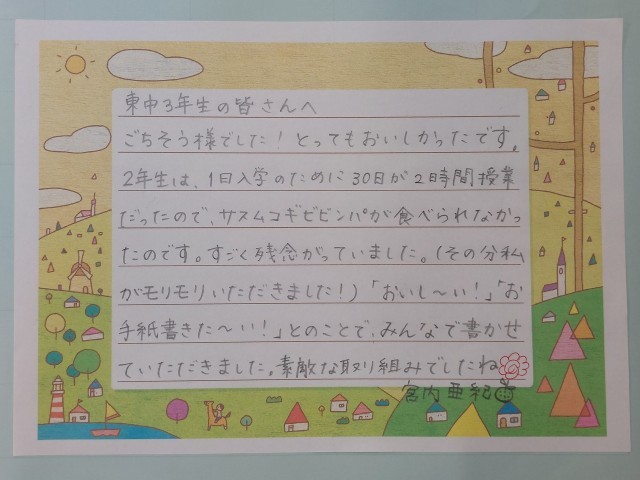 東中3年生の皆さんへ
ごちそう様でした！とってもおいしかったです。
2年生は、1日入学のために30日が2時間授業
だったので、サスムコギビビンパが食べられなかっ
たのです。すごく残念がっていました。（その分私
がモリモリいただきました！）「おいし〜い！」「お
手紙書きた〜い！」とのことで、みんなで書かせ
ていただきました。素敵な取り組みでしたね
宮内亜紀